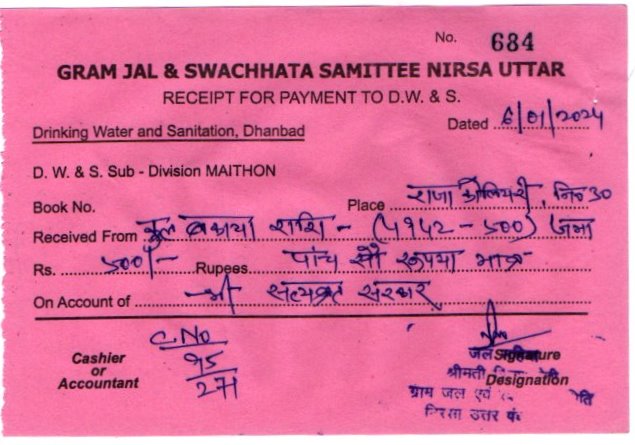 No. 684
GRAM JAL & SWACHHATA SAMITTEE NIRSA UTTAR
RECEIPT FOR PAYMENT TO D.W. & S.
Drinking Water and Sanitation, Dhanbad
Dated 6/01/2024
D. W. & S. Sub - Division MAITHON
Book No.
Place राजा कोलियरी, नि० 30
Received From कुल बकाया राशि - (५१५२ - ५००) जमा
Rs. ५००/- Rupees पांच सौ रूपया मात्र
On Account of श्री सत्यव्रत सरकार
C.No
Cashier
or
Accountant
१५
271
Signature
Designation
जल
श्रीमती
ग्राम जल एवं
निरसा उत्तर पं